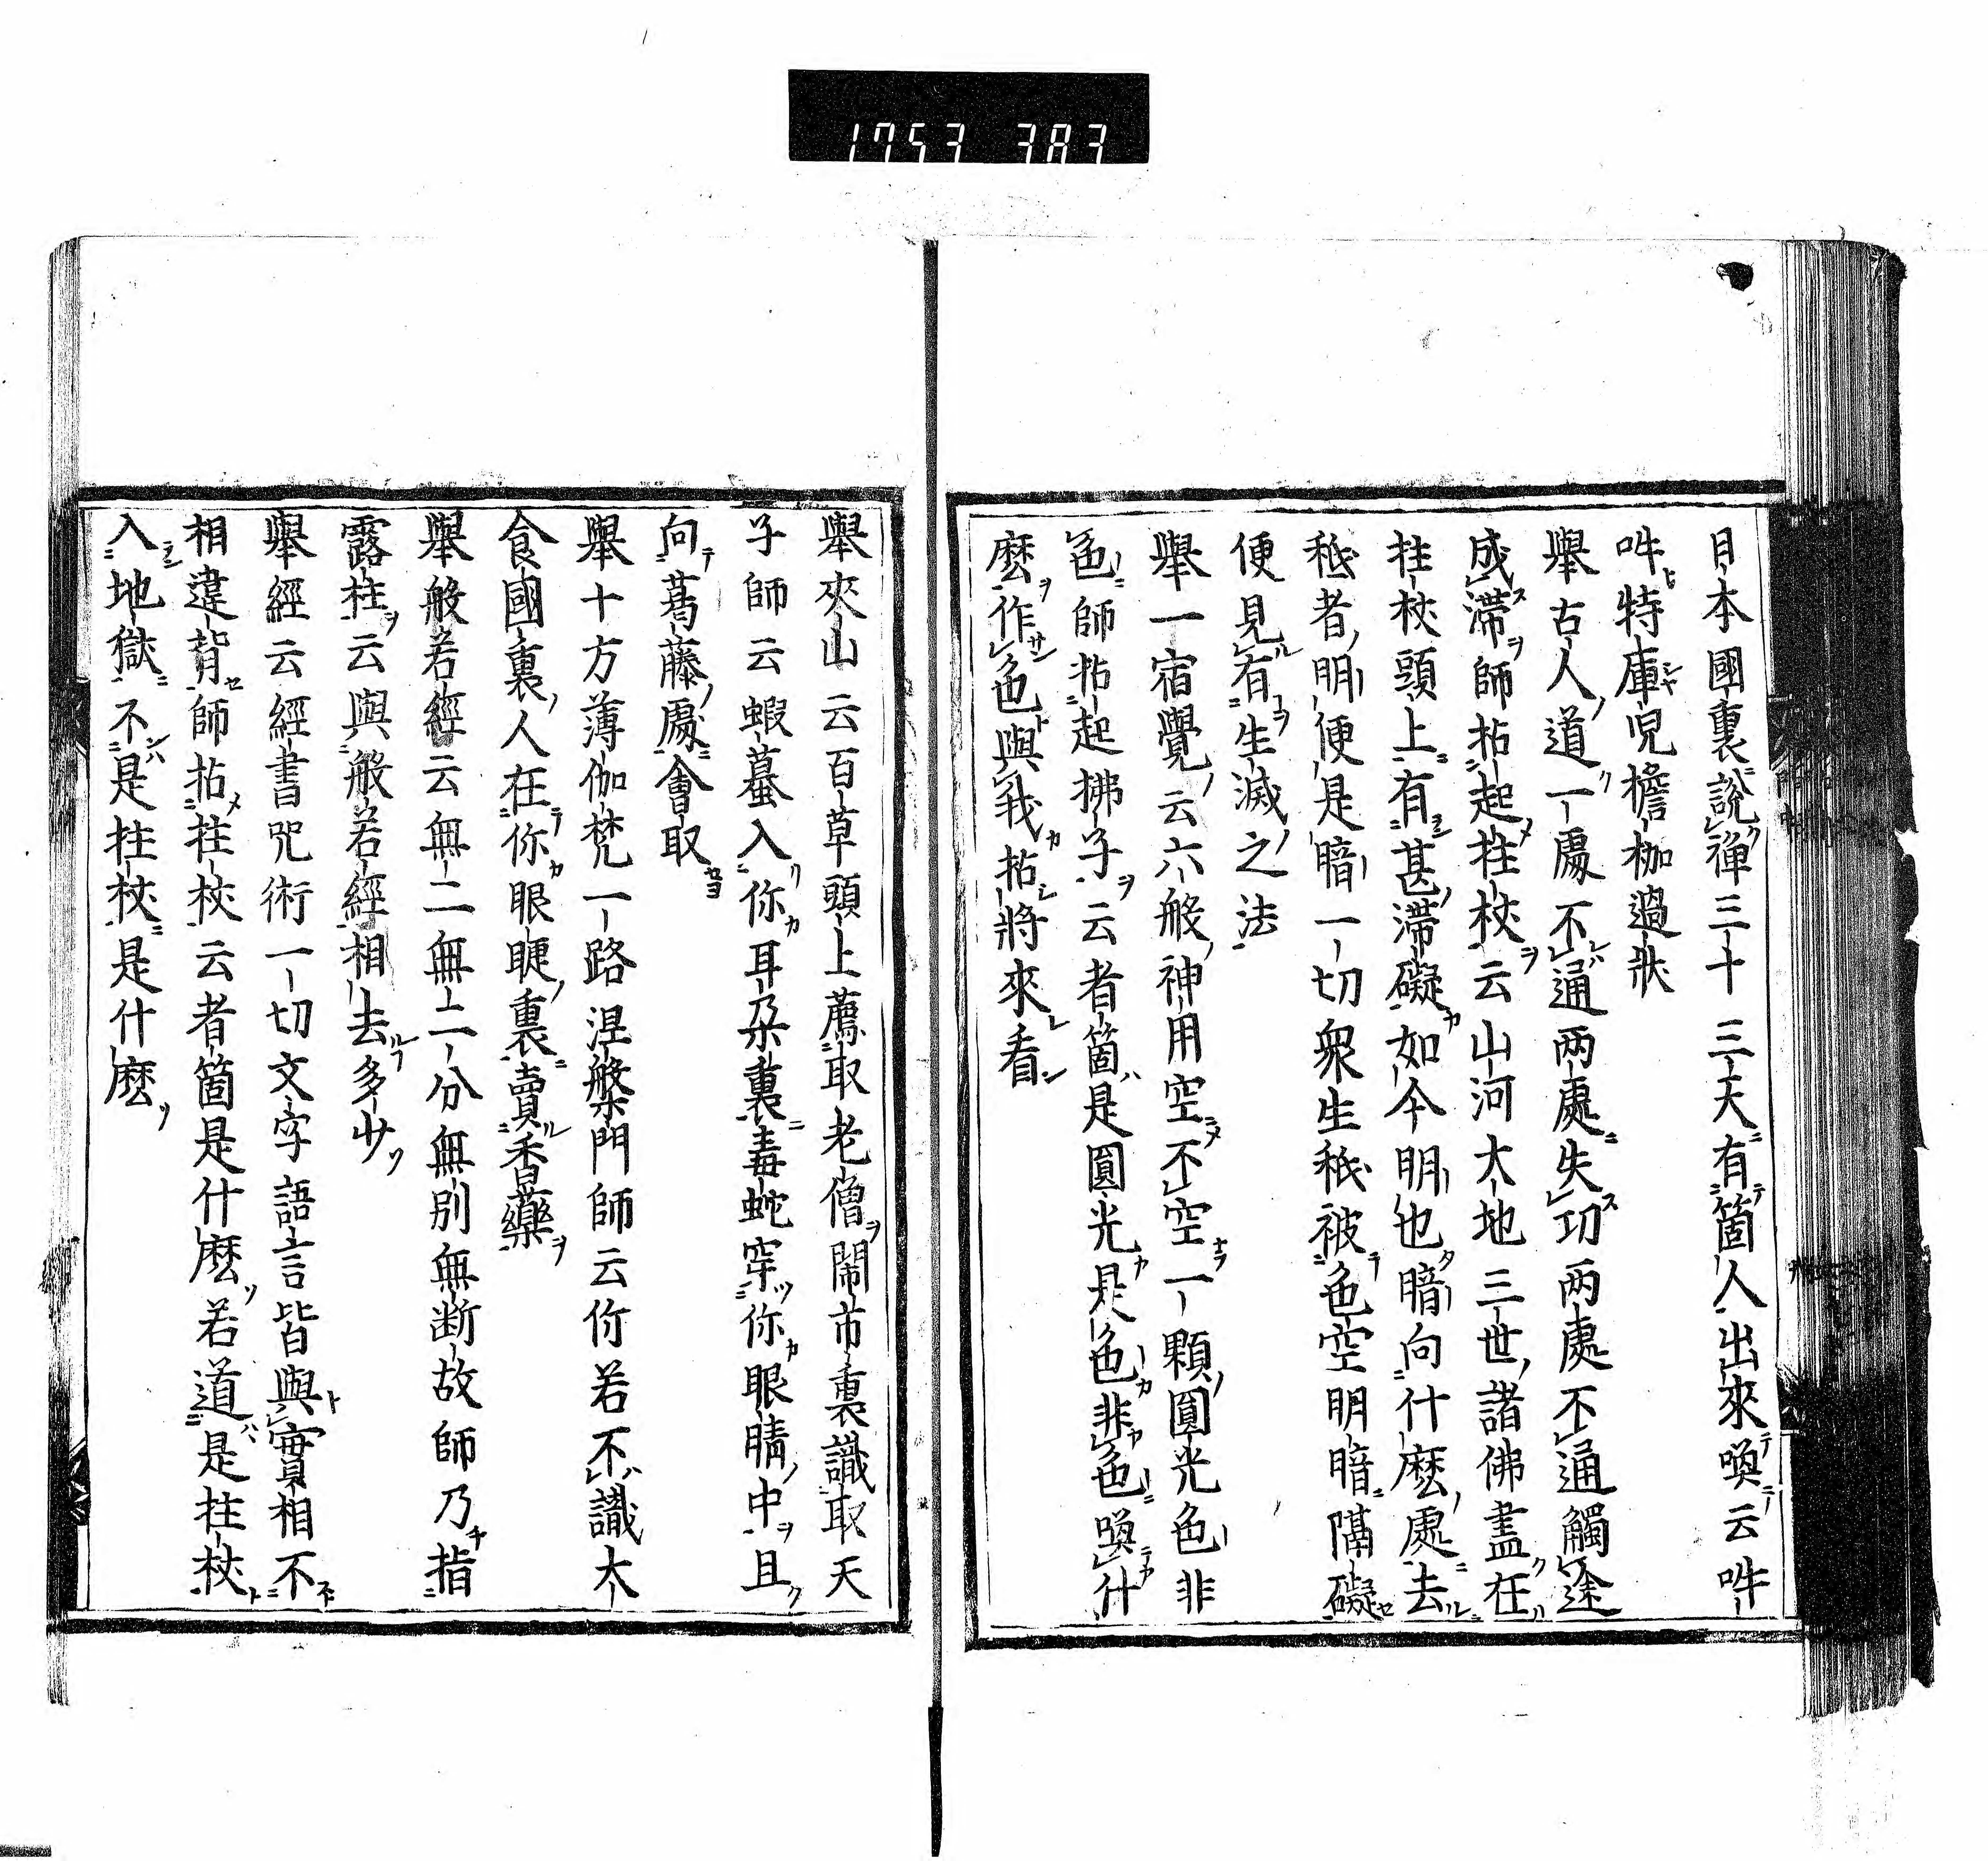 1753 383
日本國裏說禪三十三天有箇人出來喚云吽
吽特庫兒擔枷過狀
舉古人道一處不通兩處失功兩處不通觸途
成滯師拈起拄杖云山河大地三世諸佛盡在
拄杖頭上有甚滯礙如今明也暗向什麼處去
秖者明便是暗一切衆生秖被色空明暗隔礙
便見有生滅之法
舉一宿覺云六般神用空不空一顆圓光色非
色師拈起拂子云者箇是圓光是色非色喚什
麼作色與我拈將來看
舉夾山云百草頭上薦取老僧鬧市裏識取天
子師云蝦蟇入你耳朶裏毒蛇穿你眼睛中且
向葛藤處會取
舉十方薄伽梵一路涅槃門師云你若不識大
食國裏人在你眼睫裏賣香藥
舉般若經云無二無二分無別無断故師乃指
露柱云與般若經相去多少
舉經云經書咒術一切文字語言皆與實相不
相違背師拈拄杖云者箇是什麼若道是拄杖
入地獄不是拄杖是什麼